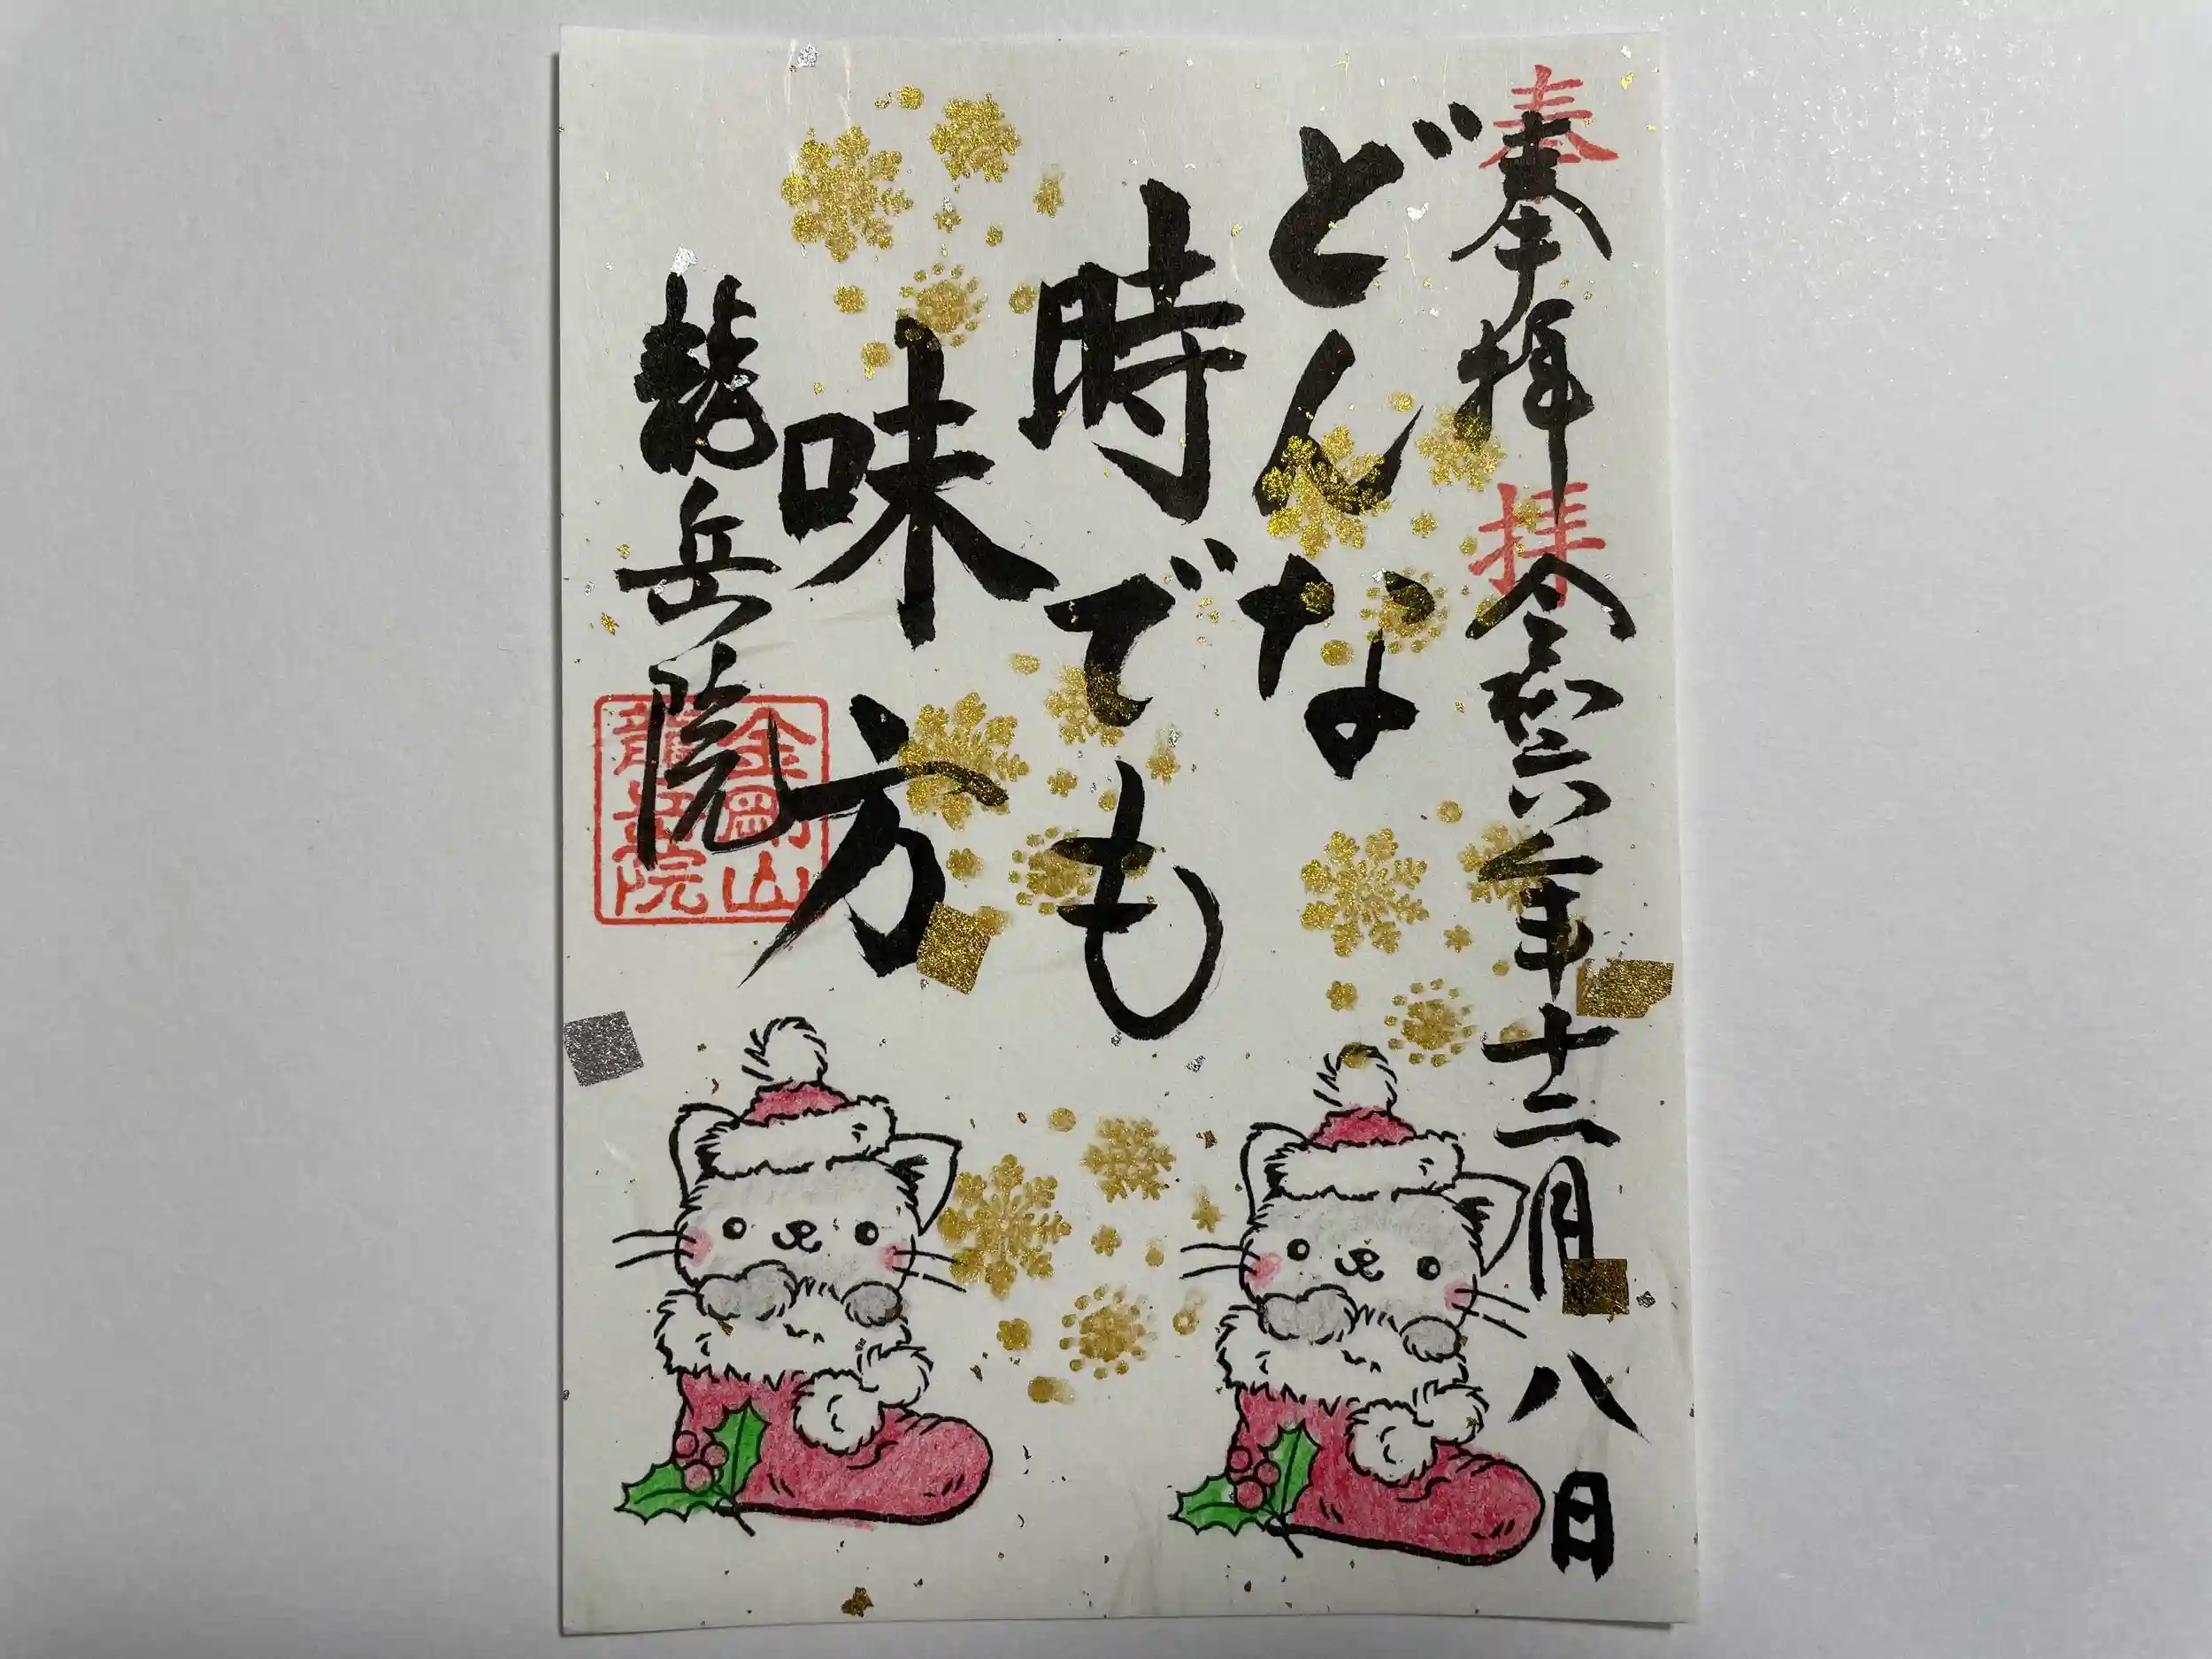 奉拝
奉拝 令和六年十二月八日
どんな
時でも
味方
龍岳院
金剛山
龍岳院